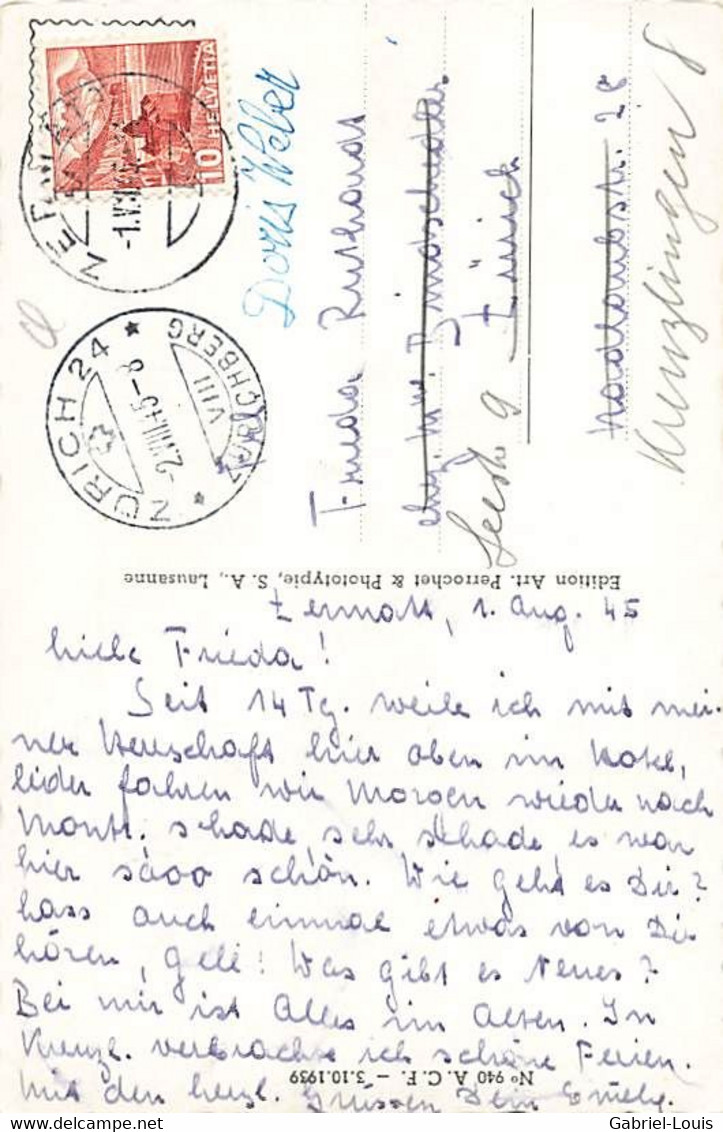 HELVETIA
10
ZERMATT
-1.VIII.45
ZÜRICH 24
-2.VIII.45-8
VIII
ZÜRICHBERG
Doris Weber
Frieda
Seestr 9 Zürich
28
Kreuzlingen 8
Edition Art. Perrochet & Phototypie, S. A., Lausanne
Zermatt, 1. Aug. 45
Liebe Frieda!
Seit 14 Tg. weile ich mit mei-
ner Herrschaft hier oben im Hotel,
leider fahren wir Morgen wieder nach
Montr. schade sehr schade es war
hier sooo schön. Wie geht es Dir?
Lass auch einmal etwas von Dir
hören, gell! Was gibt es Neues?
Bei mir ist Alles im Alten. In
Kreuzl. verbrachte ich schöne Ferien.
Mit den herzl. Grüssen Dein Emely.
Nº 940 A. C. F. — 3.10.1939
Gabriel-Louis